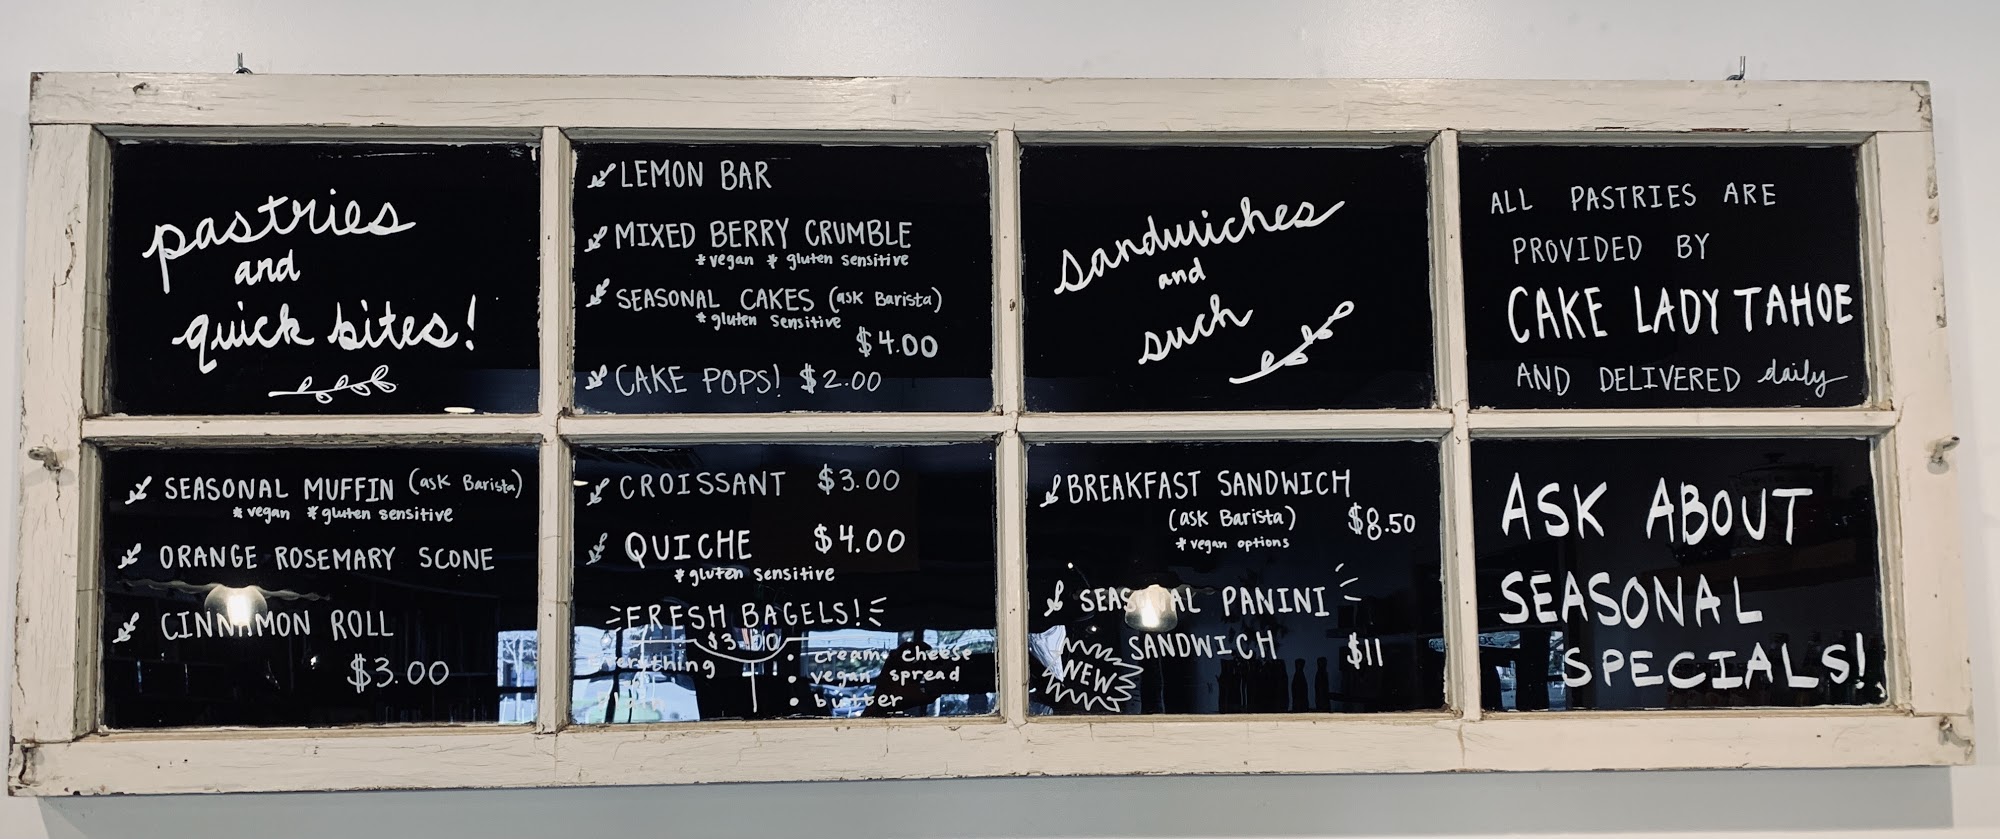 pastries
and
quick bites!
SEASONAL MUFFIN (ask Barista)
*vegan *gluten sensitive
ORANGE ROSEMARY SCONE
CINNAMON ROLL
$3.00
LEMON BAR
MIXED BERRY CRUMBLE
*vegan *gluten sensitive
SEASONAL CAKES (ask Barista)
*gluten sensitive
$4.00
CAKE POPS! $2.00
CROISSANT $3.00
QUICHE $4.00
*gluten sensitive
FRESH BAGELS!
$3.00
everything
• cream cheese
• vegan spread
• butter
sandwiches
and
such
BREAKFAST SANDWICH
(ask Barista) $8.50
*vegan options
SEASONAL PANINI
SANDWICH $11
NEW
ALL PASTRIES ARE
PROVIDED BY
CAKE LADY TAHOE
AND DELIVERED daily
ASK ABOUT
SEASONAL
SPECIALS!